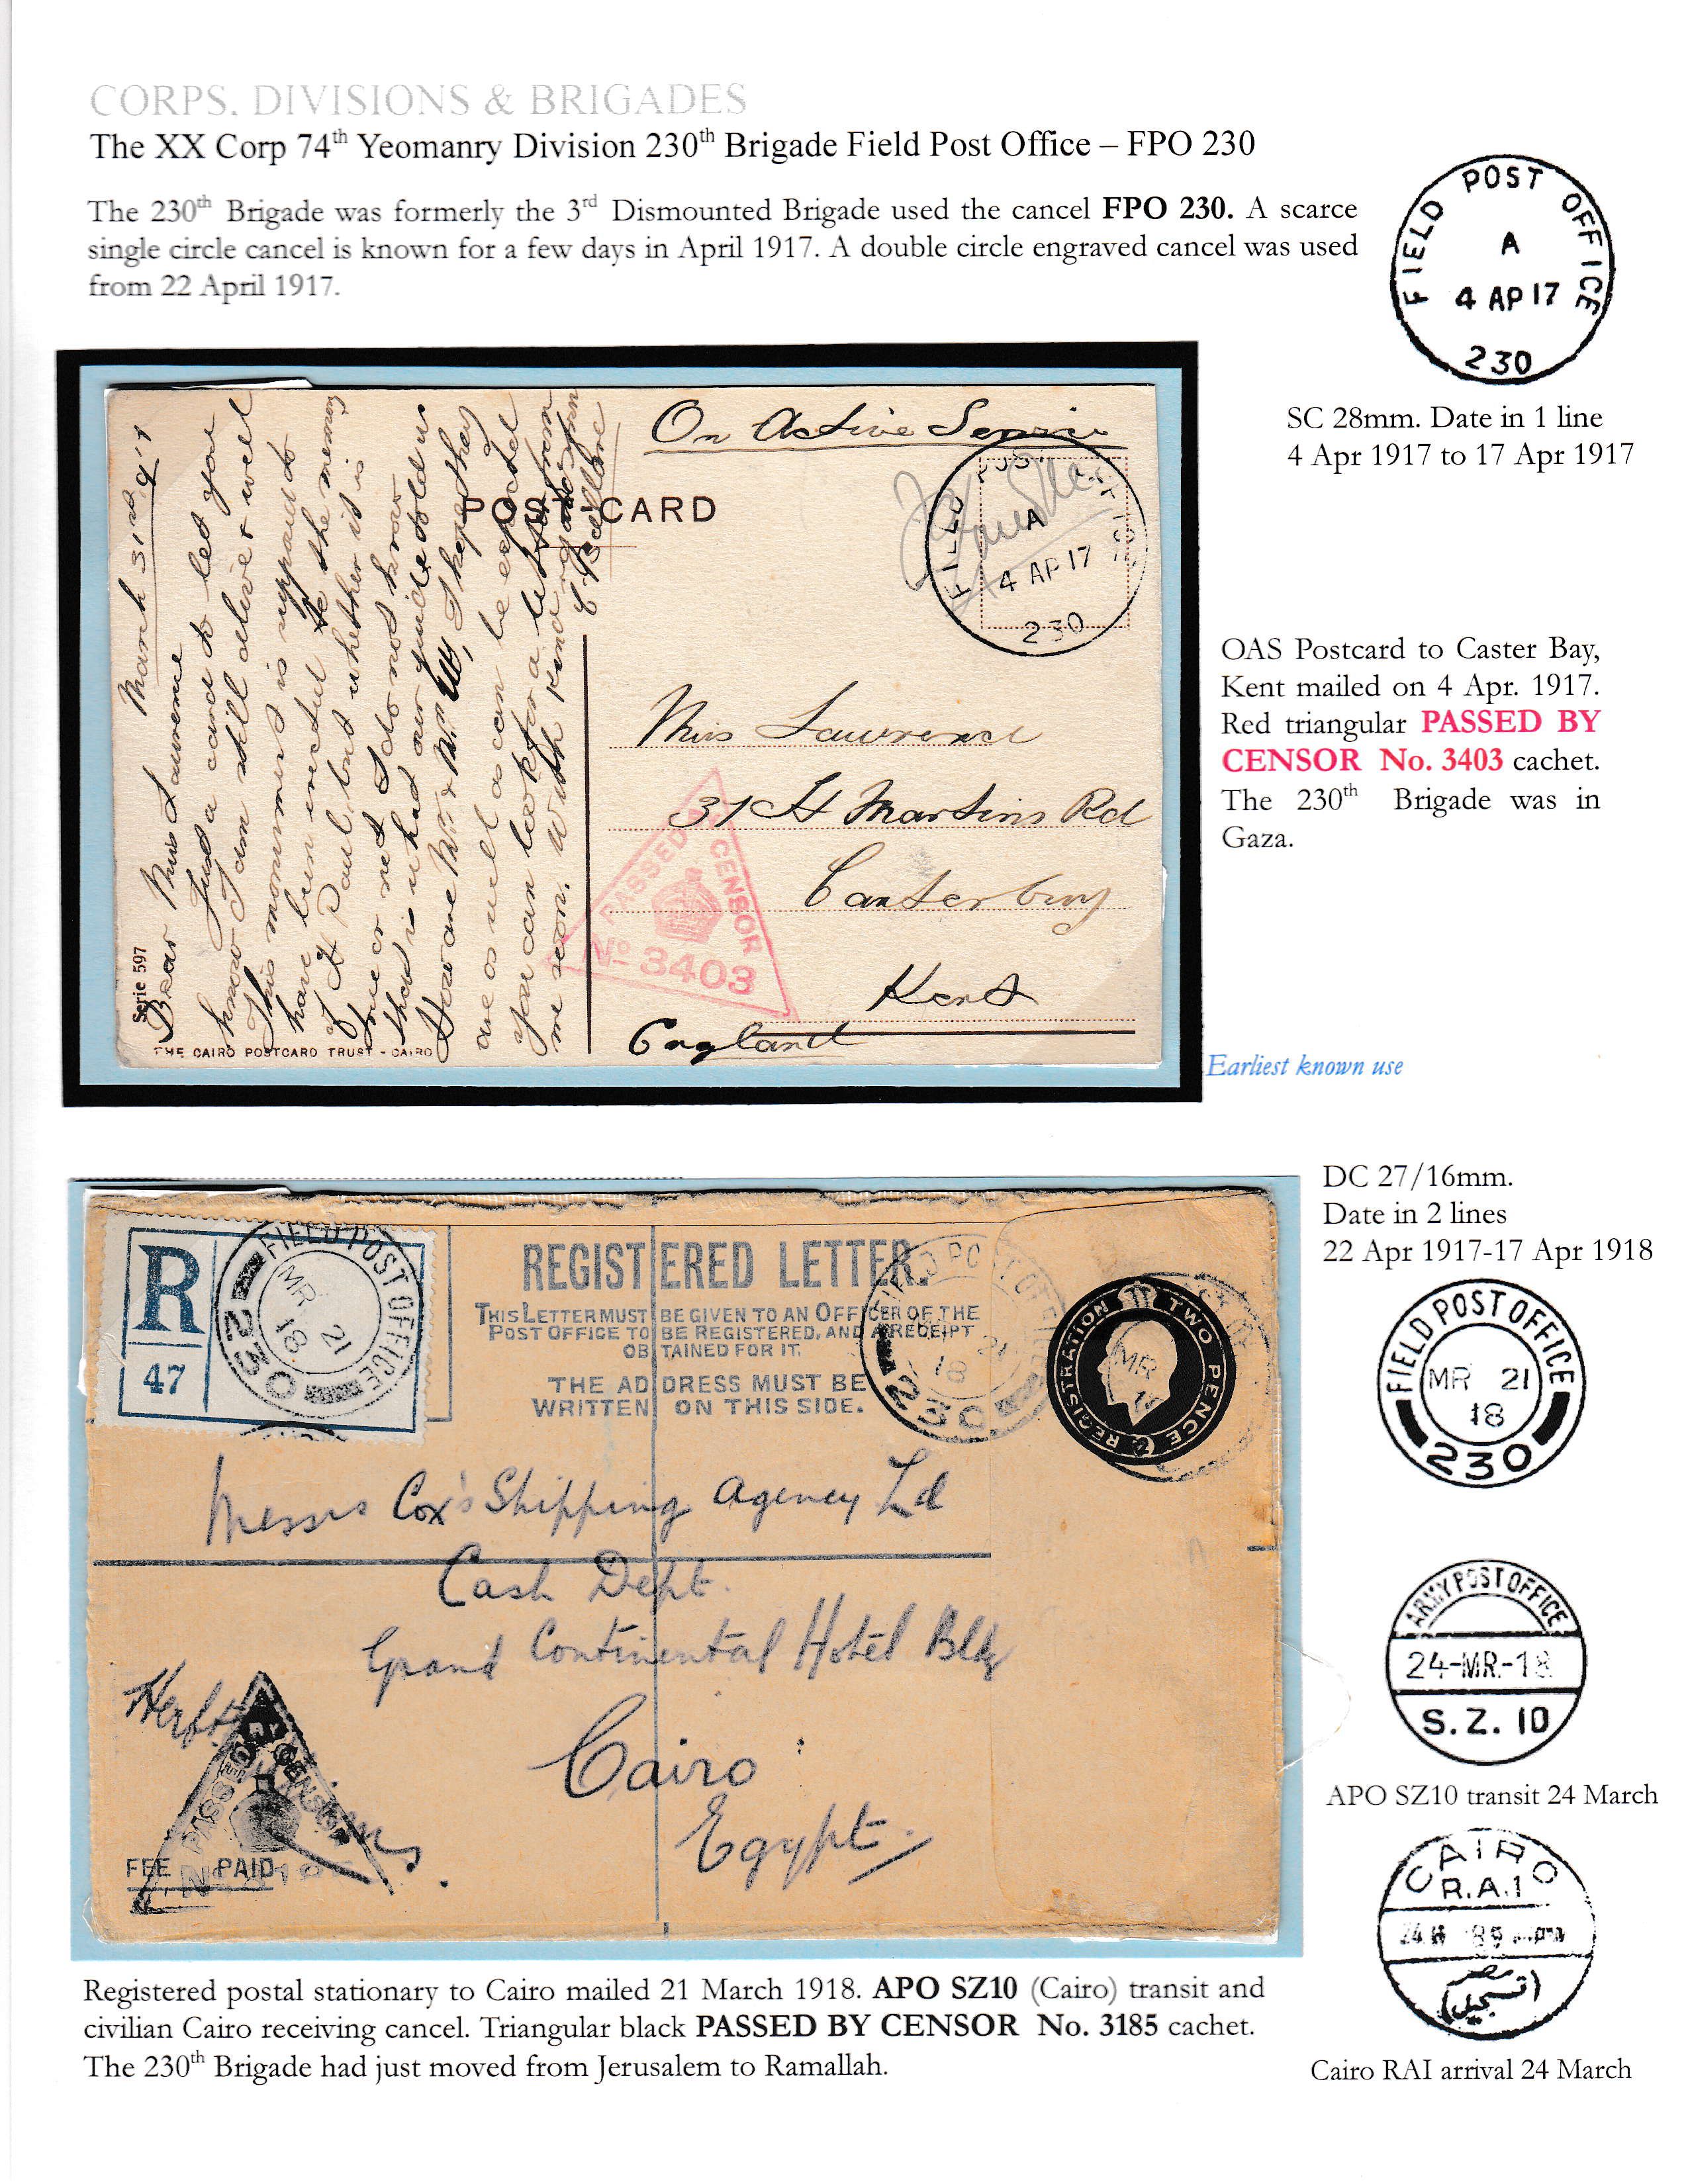 CORPS. DIVISIONS & BRIGADES
The XX Corp 74th Yeomanry Division 230th Brigade Field Post Office – FPO 230
The 230th Brigade was formerly the 3rd Dismounted Brigade used the cancel FPO 230. A scarce
single circle cancel is known for a few days in April 1917. A double circle engraved cancel was used
from 22 April 1917.
FIELD POST OFFICE
A
4 AP 17
230
SC 28mm. Date in 1 line
4 Apr 1917 to 17 Apr 1917
March 31st 1917
Dear Miss Lawrence
Just a card to let you
know I am still alive & well
This monument is supposed to
have been erected to the memory
of St Paul, but whether it is
true or not I do not know
that is what our guide told us
How are Mr & Mrs I hope they
are as well as can be expected
you can look for a letter from
me soon. With kind
Serie 597
THE CAIRO POSTCARD TRUST - CAIRO
POST CARD
On Active Service
FIELD POST OFFICE
A
4 AP 17
230
Miss Lawrence
31 St Martins Rd
Canterbury
Kent
England
PASSED BY CENSOR
No 3403
OAS Postcard to Caster Bay,
Kent mailed on 4 Apr. 1917.
Red triangular PASSED BY
CENSOR No. 3403 cachet.
The 230th Brigade was in
Gaza.
Earliest known use
R
47
FIELD POST OFFICE
MR 21
18
230
REGISTERED LETTER.
THIS LETTER MUST BE GIVEN TO AN OFFICER OF THE
POST OFFICE TO BE REGISTERED, AND A RECEIPT
OBTAINED FOR IT.
THE ADDRESS MUST BE
WRITTEN ON THIS SIDE.
FIELD POST OFFICE
21
18
230
REGISTRATION TWO PENCE
MR
Messrs Cox's Shipping Agency Ld
Cash Dept.
Grand Continental Hotel Bldg
Cairo
Egypt.
PASSED BY CENSOR
FEE PAID
DC 27/16mm.
Date in 2 lines
22 Apr 1917-17 Apr 1918
FIELD POST OFFICE
MR 21
18
230
ARMY POST OFFICE
24-MR.-18
S.Z. 10
APO SZ10 transit 24 March
CAIRO
R.A.1
Cairo RAI arrival 24 March
Registered postal stationary to Cairo mailed 21 March 1918. APO SZ10 (Cairo) transit and
civilian Cairo receiving cancel. Triangular black PASSED BY CENSOR No. 3185 cachet.
The 230th Brigade had just moved from Jerusalem to Ramallah.